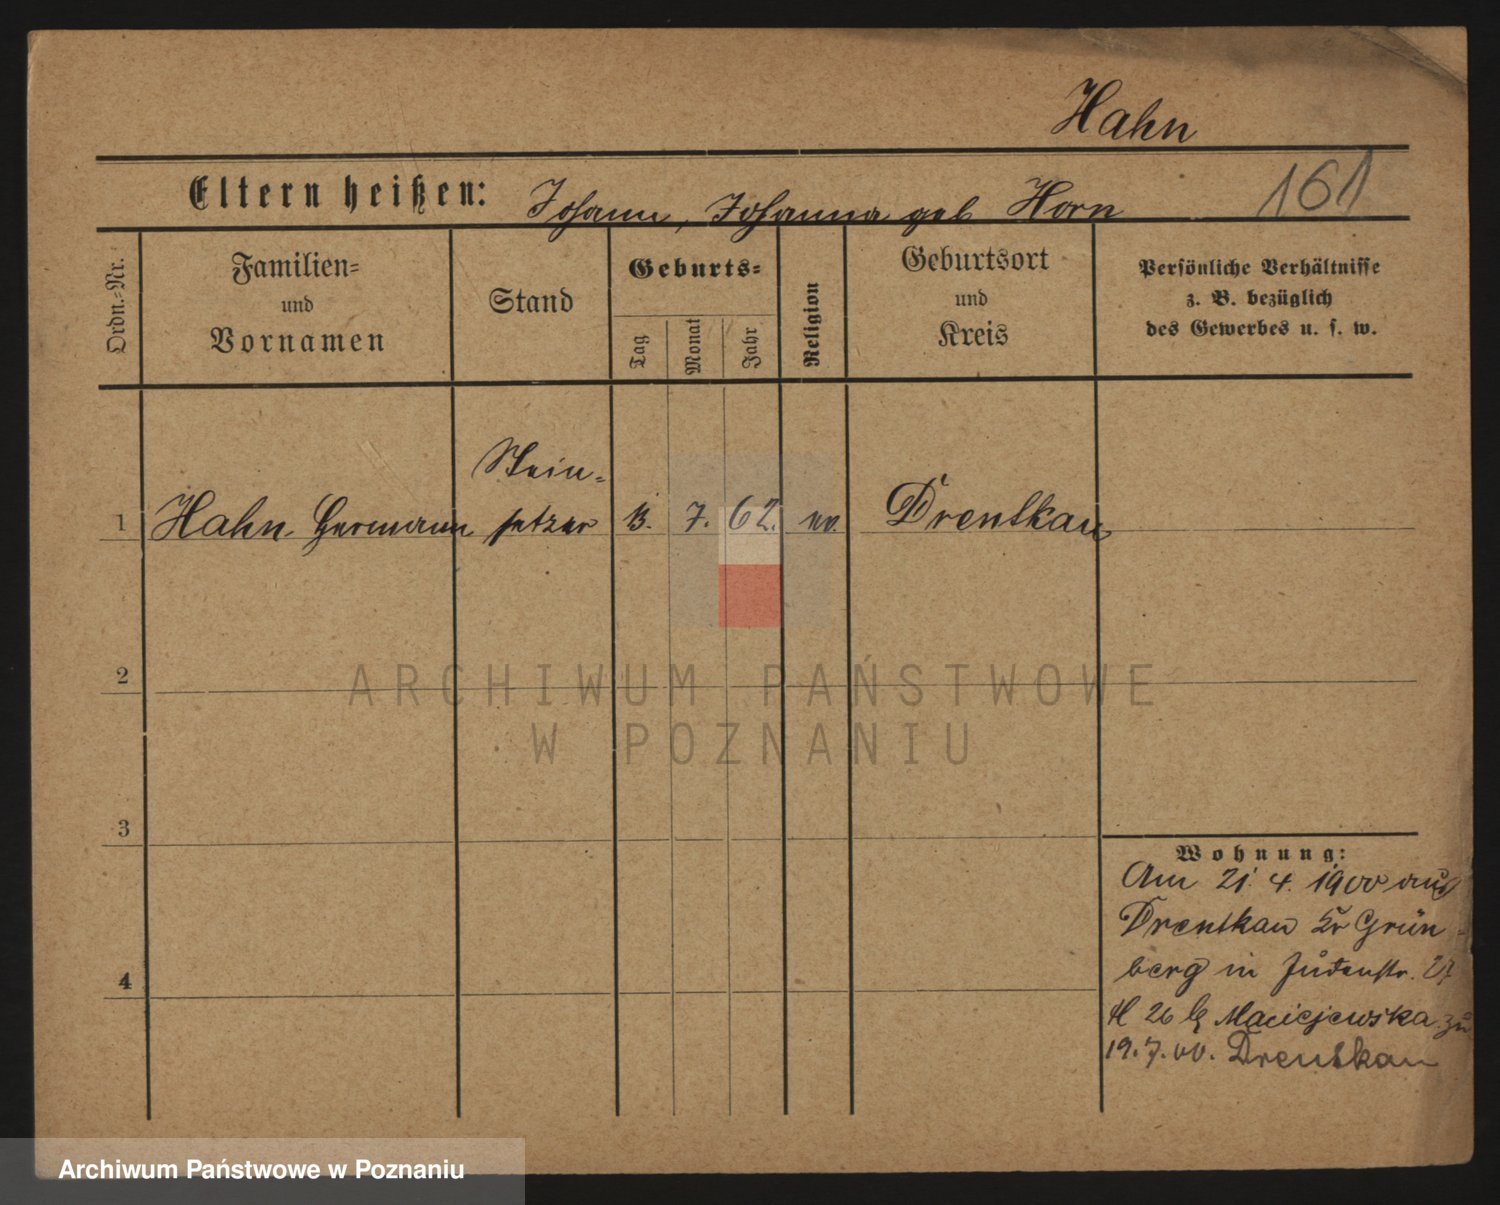 Hahn
161
Eltern heißen: Johann, Johanna geb Horn
Ordn.-Nr.
Familien-
und
Vornamen
Stand
Geburts-
Tag
Monat
Jahr
Religion
Geburtsort
und
Kreis
Persönliche Verhältnisse
z. B. bezüglich
des Gewerbes u. s. w.
Stein-
1 Hahn Hermann setzer 13. 7. 62. ev. Drentkau
2
ARCHIWUM PAŃSTWOWE
W POZNANIU
3
4
Wohnung:
Am 21. 4. 1900 aus
Drentkau Kr Grün-
berg in Judenstr. 27
H 26 b Maciejewska zu
19. 7. 00. Drentkau
Archiwum Państwowe w Poznaniu